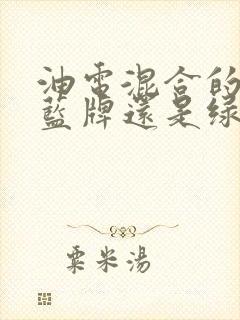 油電混合的
藍牌還是綠
粟米湯